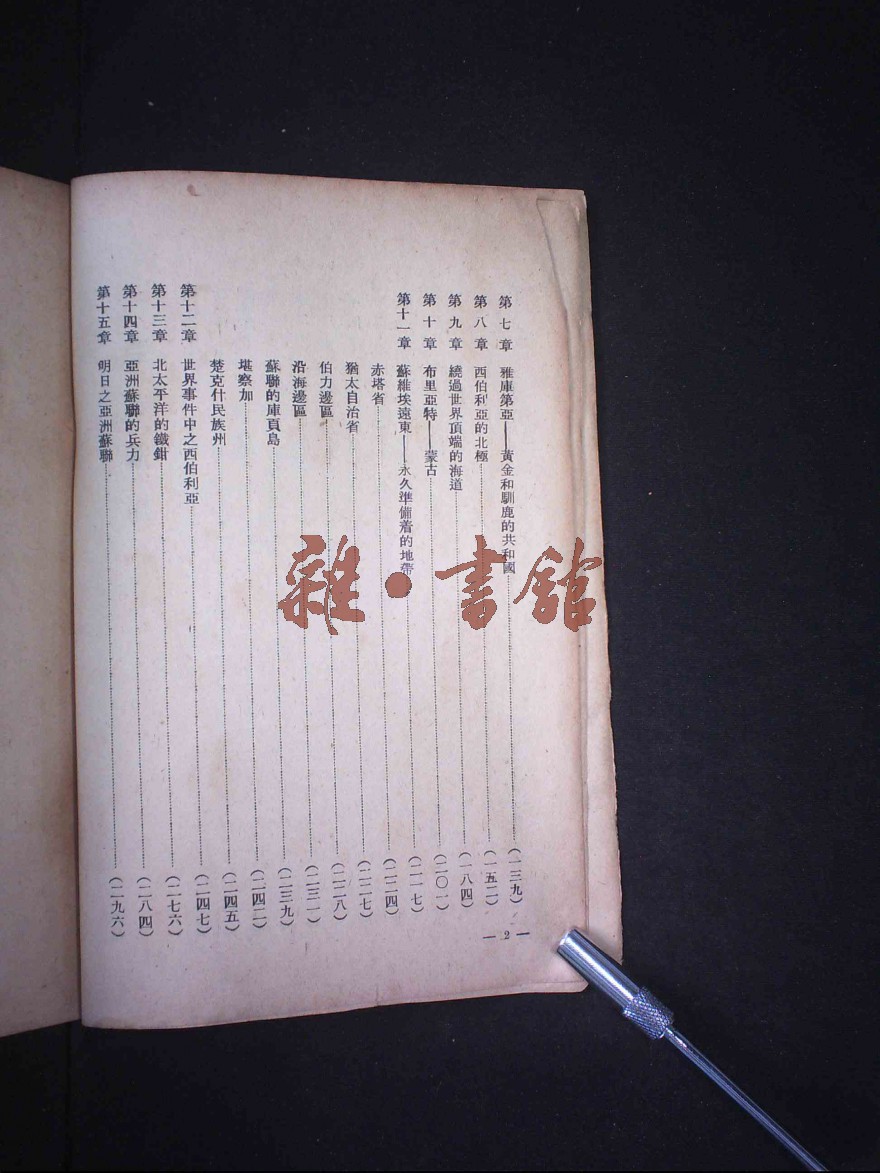 第七章 雅庫第亞——黃金和馴鹿的共和國……(一三九)
第八章 西伯利亞的北極……(一五二)
第九章 繞過世界頂端的海道……(一八四)
第十章 布里亞特——蒙古……(二〇一)
第十一章 蘇維埃遠東——永久準備着的地帶……(二一七)
赤塔省……(二二四)
猶太自治省……(二二七)
伯力邊區……(二二八)
沿海邊區……(二三一)
蘇聯的庫頁島……(二三九)
堪察加……(二四二)
楚克什民族州……(二四五)
第十二章 世界事件中之西伯利亞……(二四七)
第十三章 北太平洋的鐵鉗……(二七六)
第十四章 亞洲蘇聯的兵力……(二八四)
第十五章 明日之亞洲蘇聯……(二九六)
— 2 —
雜·書館